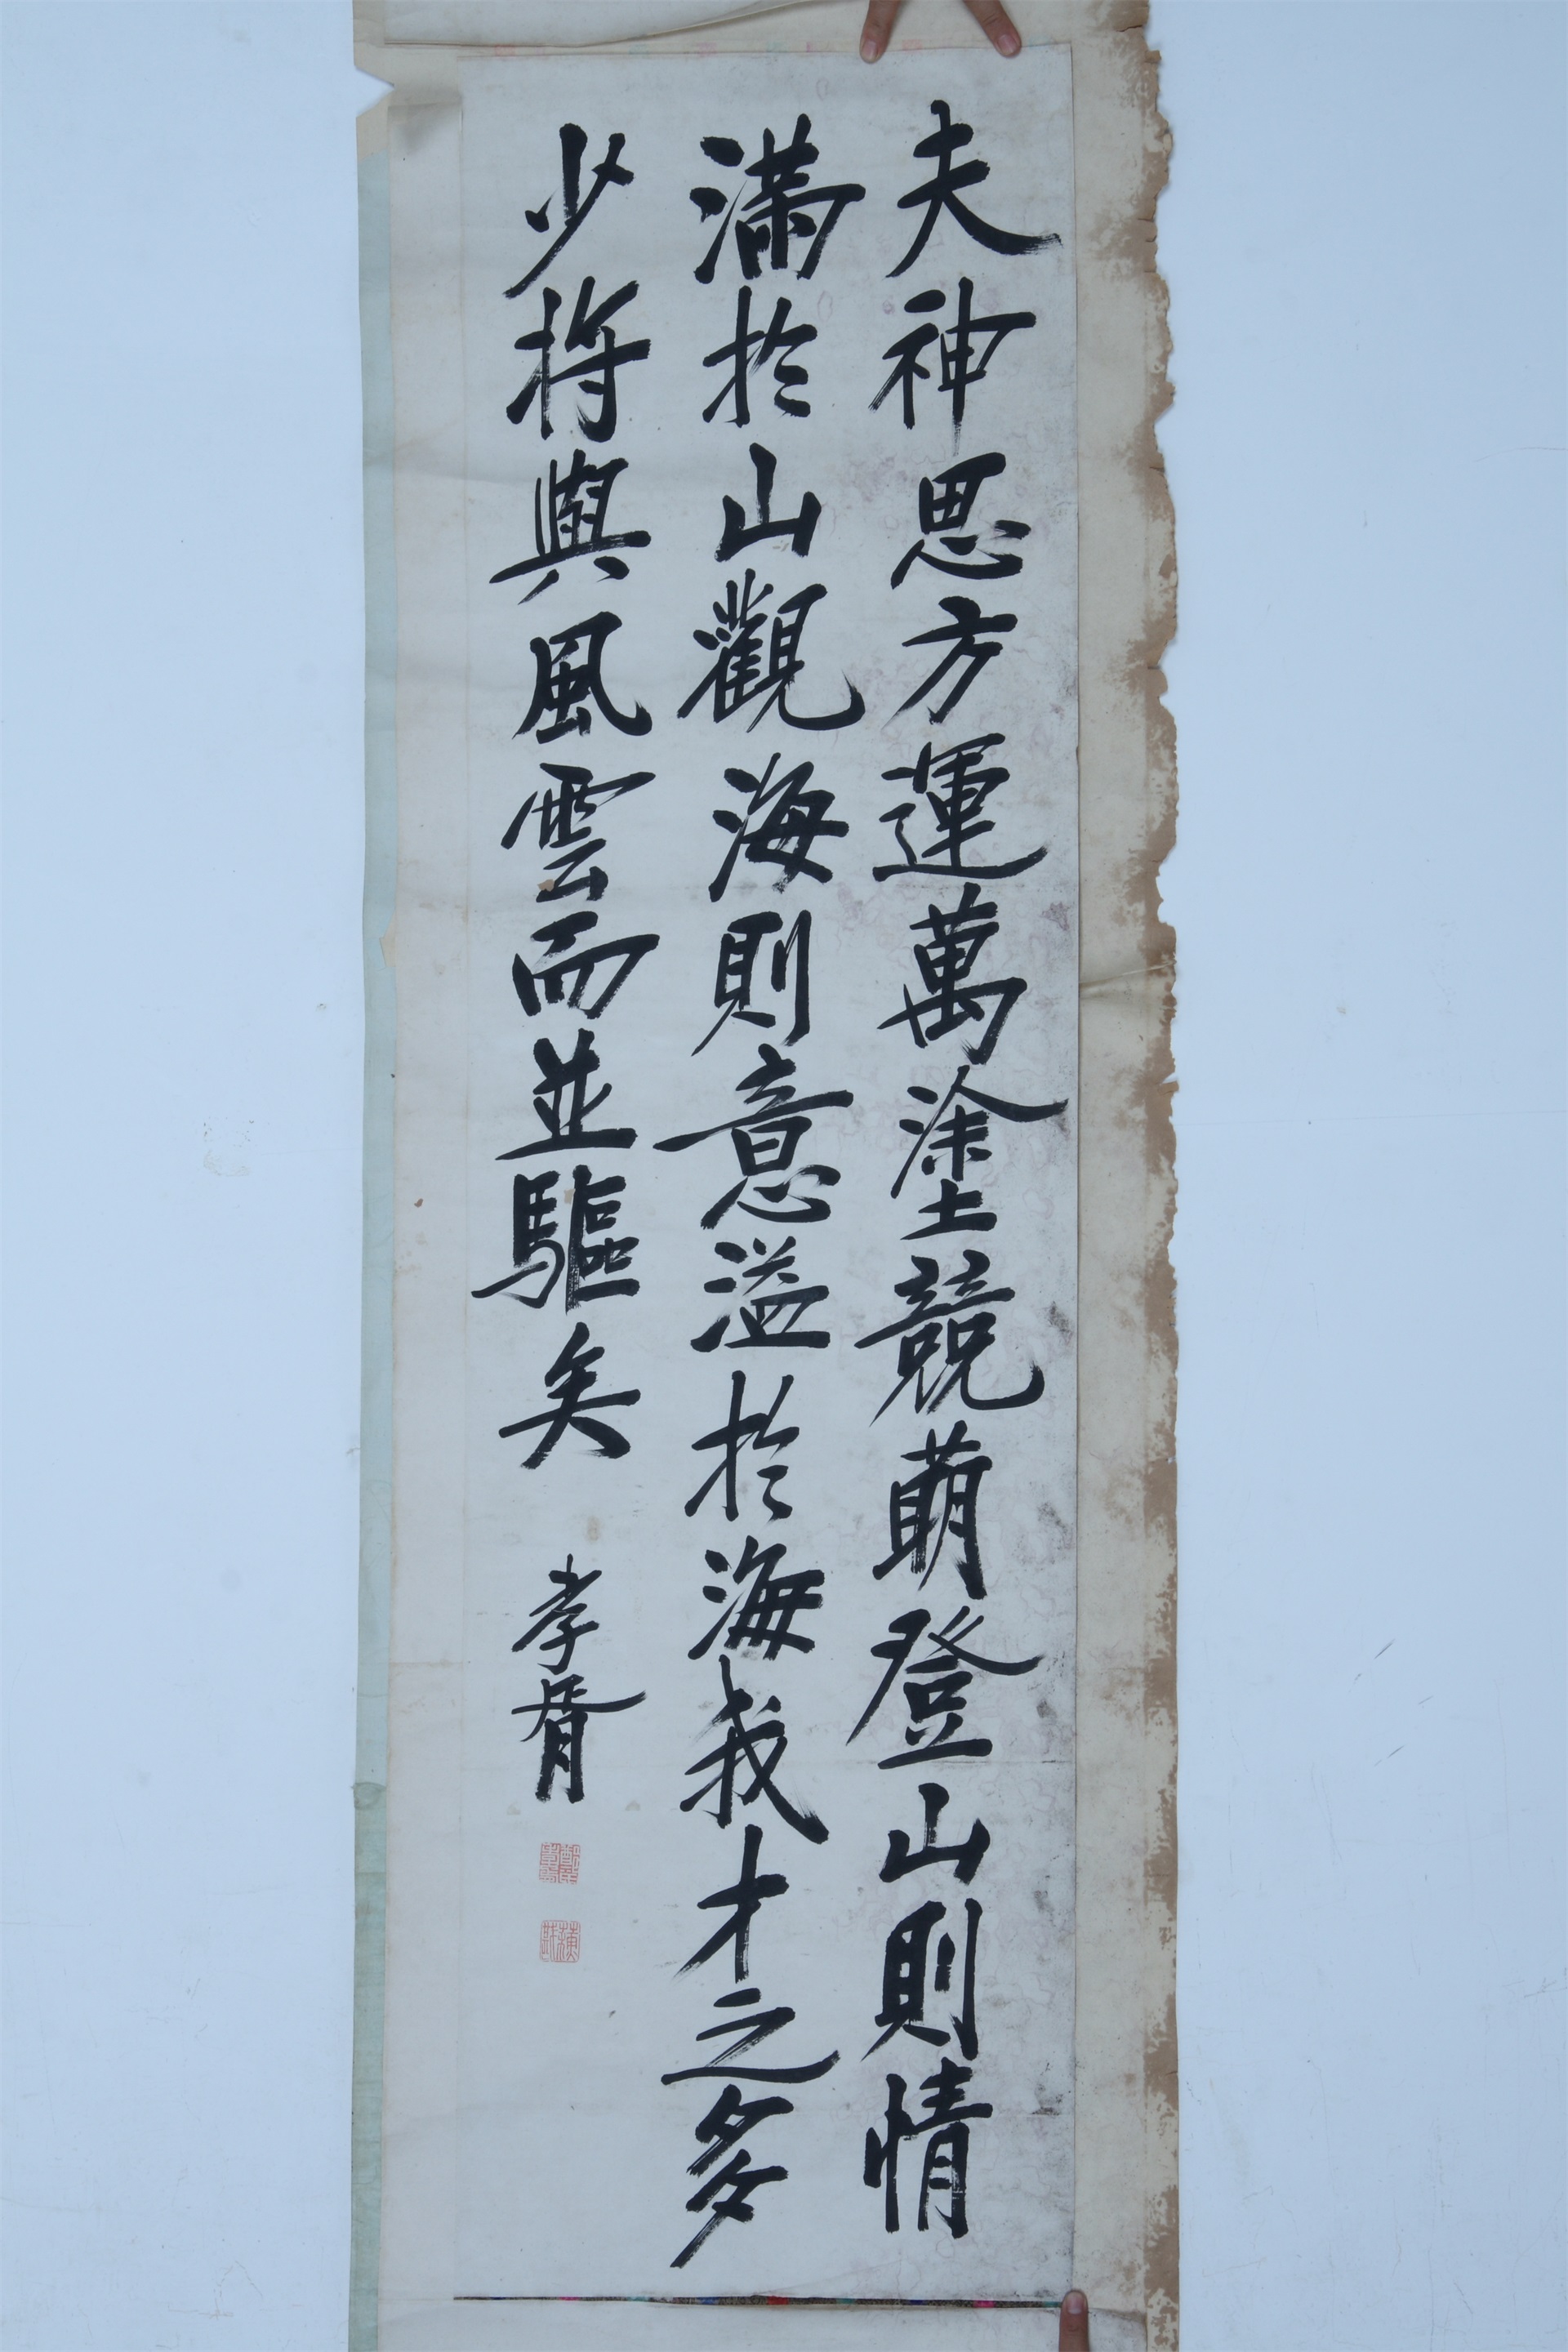 夫神思方運萬塗競萌登山則情
滿於山觀海則意溢於海我才之多
少將與風雲而並驅矣
孝胥